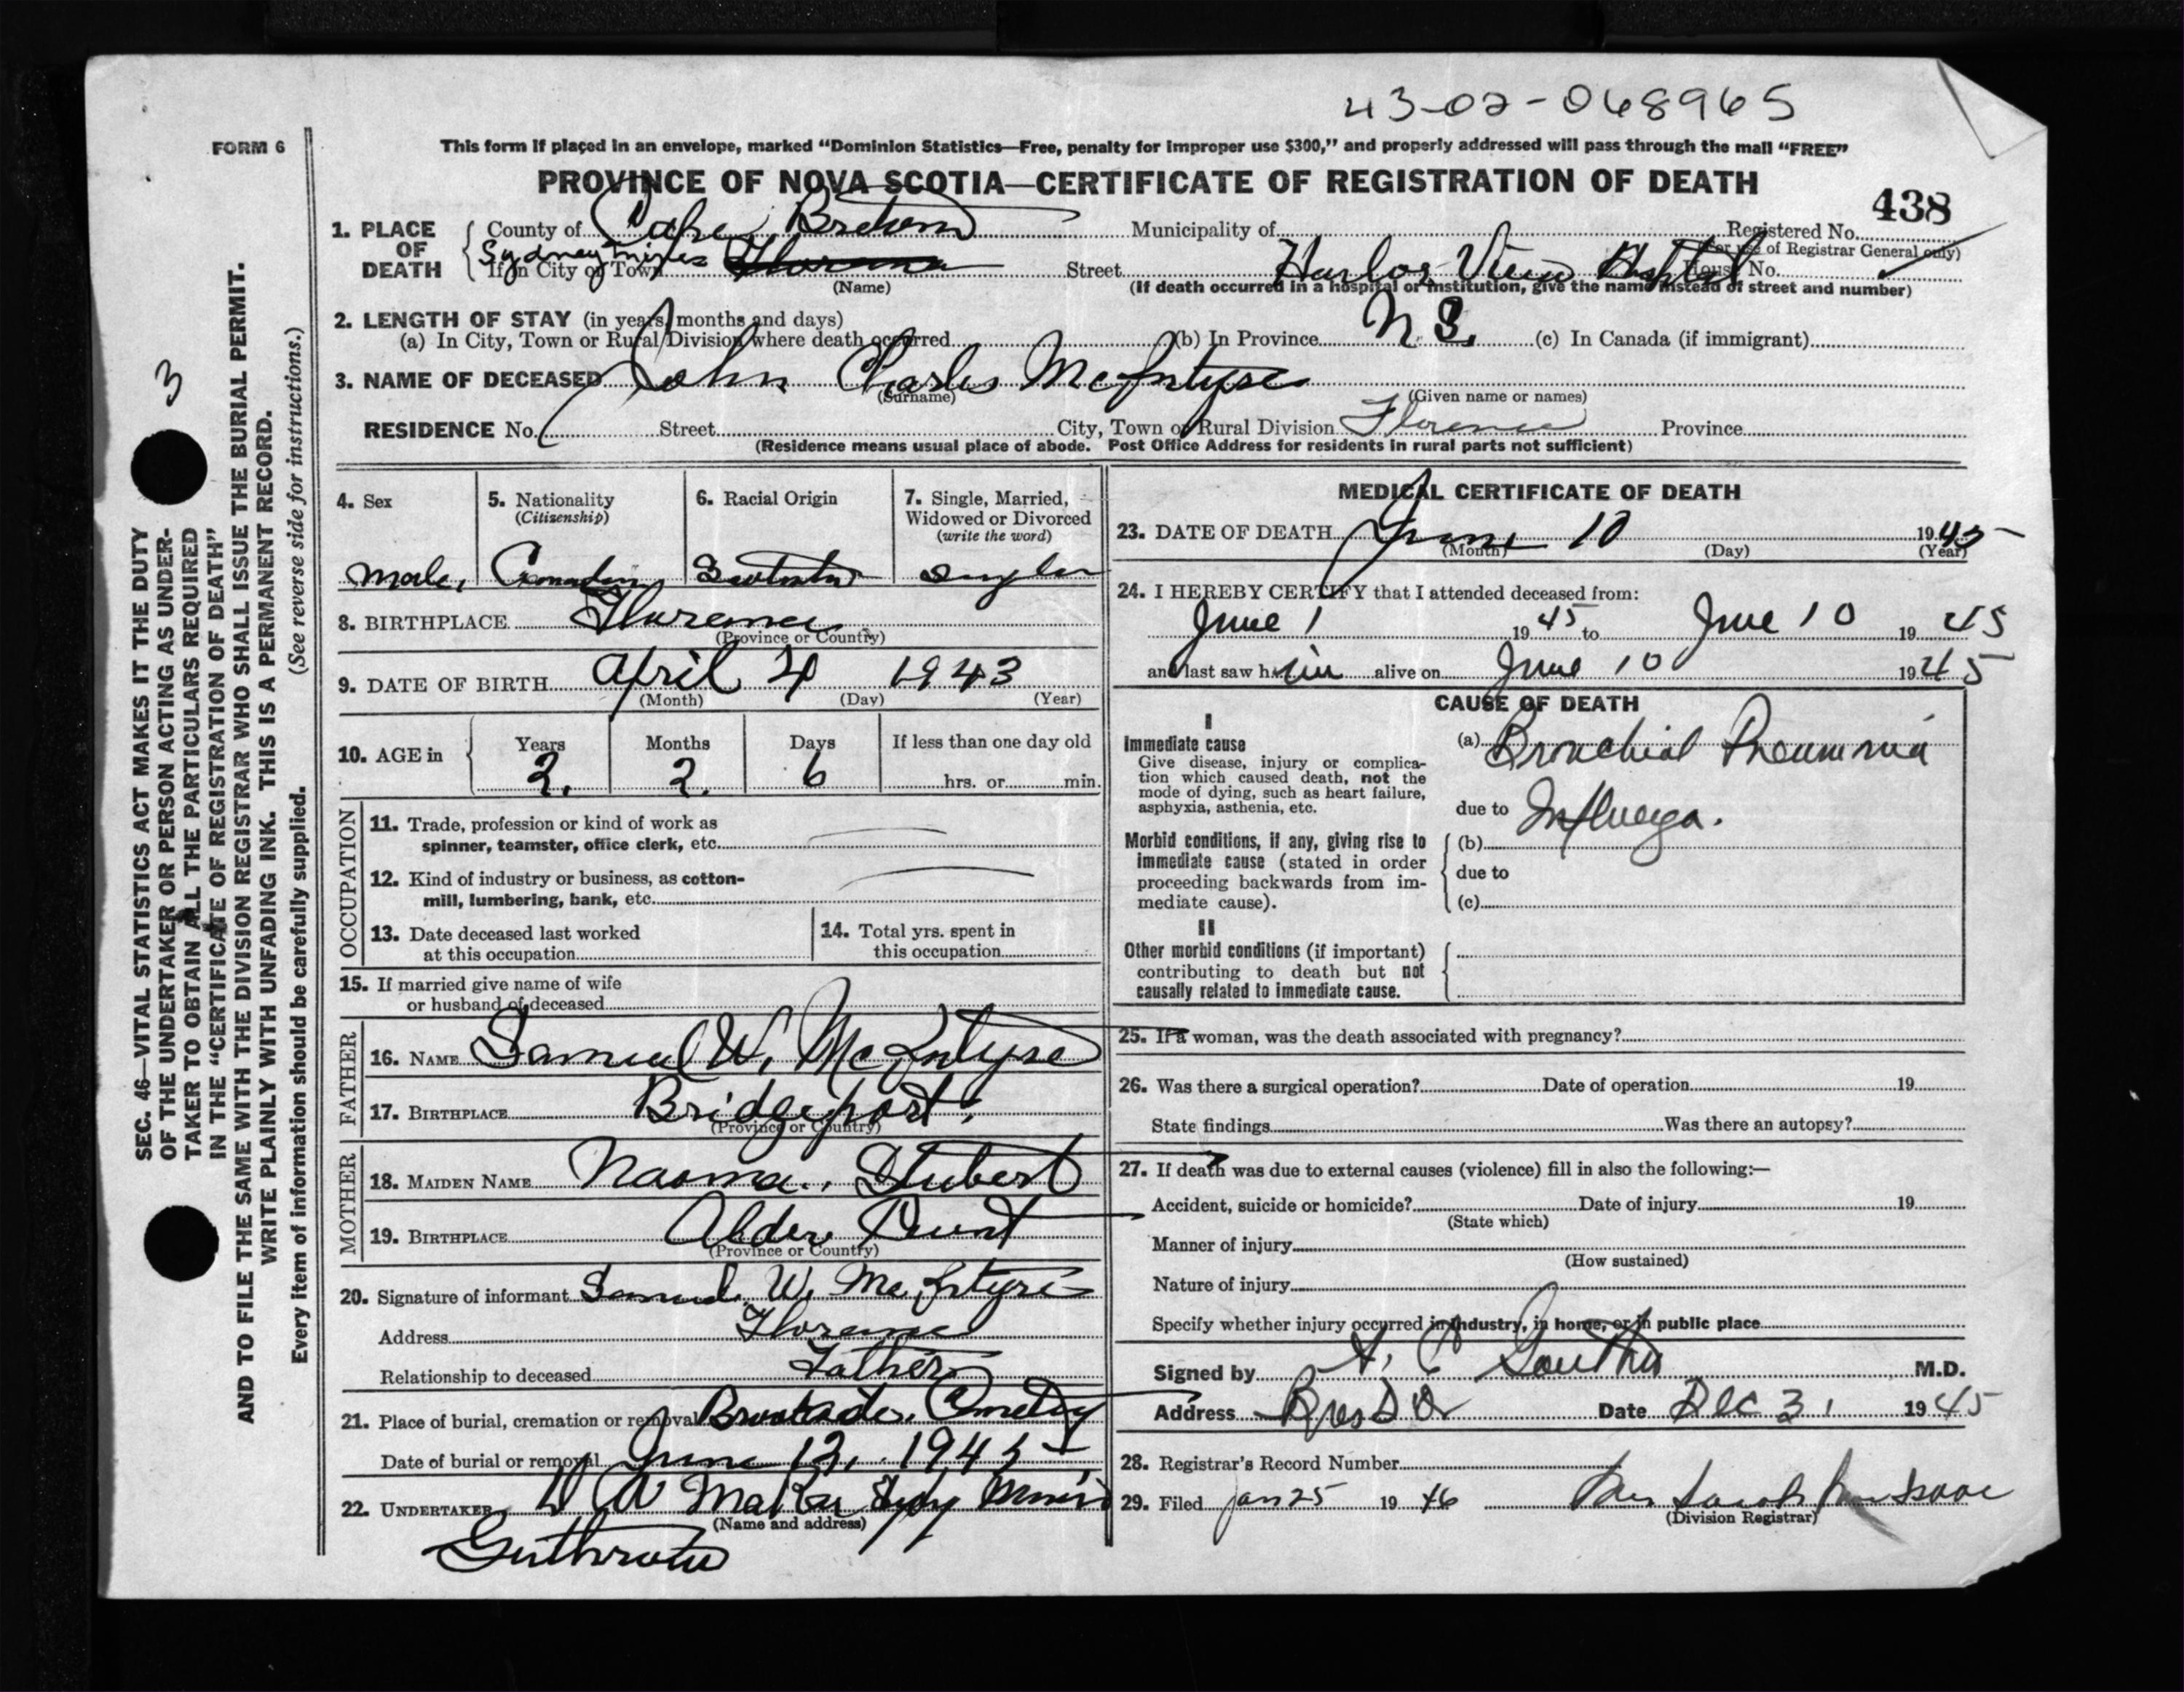 43-02-068965
FORM 6
This form if placed in an envelope, marked "Dominion Statistics—Free, penalty for improper use $300," and properly addressed will pass through the mail "FREE"
PROVINCE OF NOVA SCOTIA—CERTIFICATE OF REGISTRATION OF DEATH
438
1. PLACE OF DEATH
County of Cape Breton Municipality of Registered No.
(For use of Registrar General only)
If in City or Town Sydney Mines Florence Street Harbor View Hospital House No.
(Name) (If death occurred in a hospital or institution, give the name instead of street and number)
2. LENGTH OF STAY (in years, months and days)
(a) In City, Town or Rural Division where death occurred (b) In Province N S. (c) In Canada (if immigrant)
3. NAME OF DECEASED John Charles McIntyre
(Surname) (Given name or names)
RESIDENCE No. Street City, Town or Rural Division Florence Province
(Residence means usual place of abode. Post Office Address for residents in rural parts not sufficient)
4. Sex
male
5. Nationality
(Citizenship)
Canadian
6. Racial Origin
7. Single, Married, Widowed or Divorced
(write the word)
single
8. BIRTHPLACE Florence
(Province or Country)
9. DATE OF BIRTH April 4 1943
(Month) (Day) (Year)
10. AGE in
Years Months Days If less than one day old
2. 2. 6 hrs. or min.
OCCUPATION
11. Trade, profession or kind of work as
spinner, teamster, office clerk, etc.
12. Kind of industry or business, as cotton-
mill, lumbering, bank, etc.
13. Date deceased last worked
at this occupation
14. Total yrs. spent in
this occupation
15. If married give name of wife
or husband of deceased
FATHER
16. NAME Samuel W. McIntyre
17. BIRTHPLACE Bridgeport.
(Province or Country)
MOTHER
18. MAIDEN NAME Naoma Stubert
19. BIRTHPLACE Alder Point
(Province or Country)
20. Signature of informant Samuel W. McIntyre
Address Florence
Relationship to deceased Father
21. Place of burial, cremation or removal Brookside Cemetery
Date of burial or removal June 12, 1945
22. UNDERTAKER
(Name and address)
MEDICAL CERTIFICATE OF DEATH
23. DATE OF DEATH June 10 1945
(Month) (Day) (Year)
24. I HEREBY CERTIFY that I attended deceased from:
June 1 1945 to June 10 1945
and last saw him alive on June 10 1945
CAUSE OF DEATH
I
Immediate cause
Give disease, injury or complica-
tion which caused death, not the
mode of dying, such as heart failure,
asphyxia, asthenia, etc.
(a) Bronchial Pneumonia
due to Influenza.
Morbid conditions, if any, giving rise to
immediate cause (stated in order
proceeding backwards from im-
mediate cause).
(b)
due to
(c)
II
Other morbid conditions (if important)
contributing to death but not
causally related to immediate cause.
25. If a woman, was the death associated with pregnancy?
26. Was there a surgical operation? Date of operation 19
State findings Was there an autopsy?
27. If death was due to external causes (violence) fill in also the following:—
Accident, suicide or homicide? Date of injury 19
(State which)
Manner of injury
(How sustained)
Nature of injury
Specify whether injury occurred in industry, in home, or in public place
Signed by M.D.
Address Bras D'Or Date Dec 31 1945
28. Registrar's Record Number
29. Filed Jan 25 1946
(Division Registrar)
3
SEC. 46—VITAL STATISTICS ACT MAKES IT THE DUTY
OF THE UNDERTAKER OR PERSON ACTING AS UNDER-
TAKER TO OBTAIN ALL THE PARTICULARS REQUIRED
IN THE "CERTIFICATE OF REGISTRATION OF DEATH"
AND TO FILE THE SAME WITH THE DIVISION REGISTRAR WHO SHALL ISSUE THE BURIAL PERMIT.
WRITE PLAINLY WITH UNFADING INK. THIS IS A PERMANENT RECORD.
Every item of information should be carefully supplied. (See reverse side for instructions.)